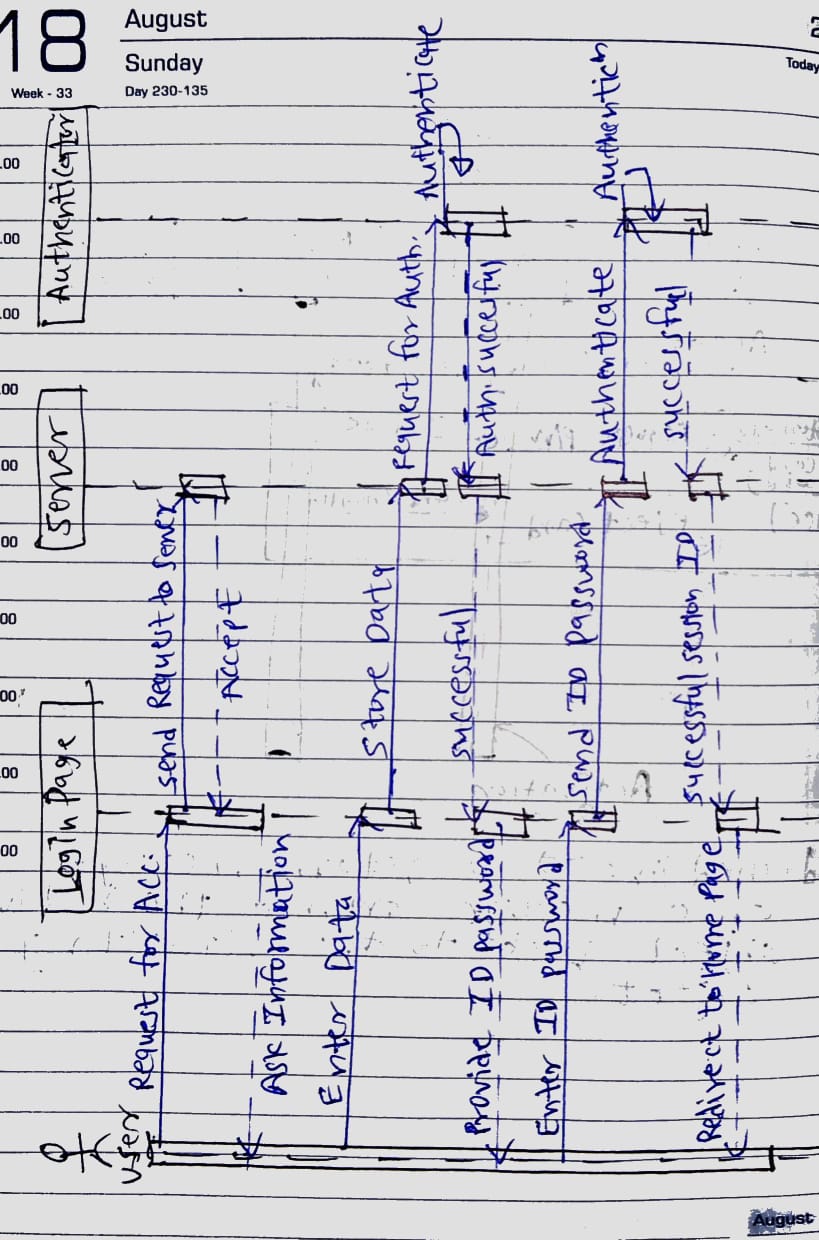 18
August
Sunday
Week - 33
Day 230-135
Today
.00
.00
.00
.00
.00
00
00
00
.00
00
User
Login Page
Server
Authenticator
Request for Acc.
Send Request to Server
Accept
Ask Information
Enter Data
Store Data
request for Auth.
Authenticate
Auth. succesful
successful
Provide ID password
Enter ID password
Send ID password
Authenticate
successful
successful session ID
Redirect to Home Page
August